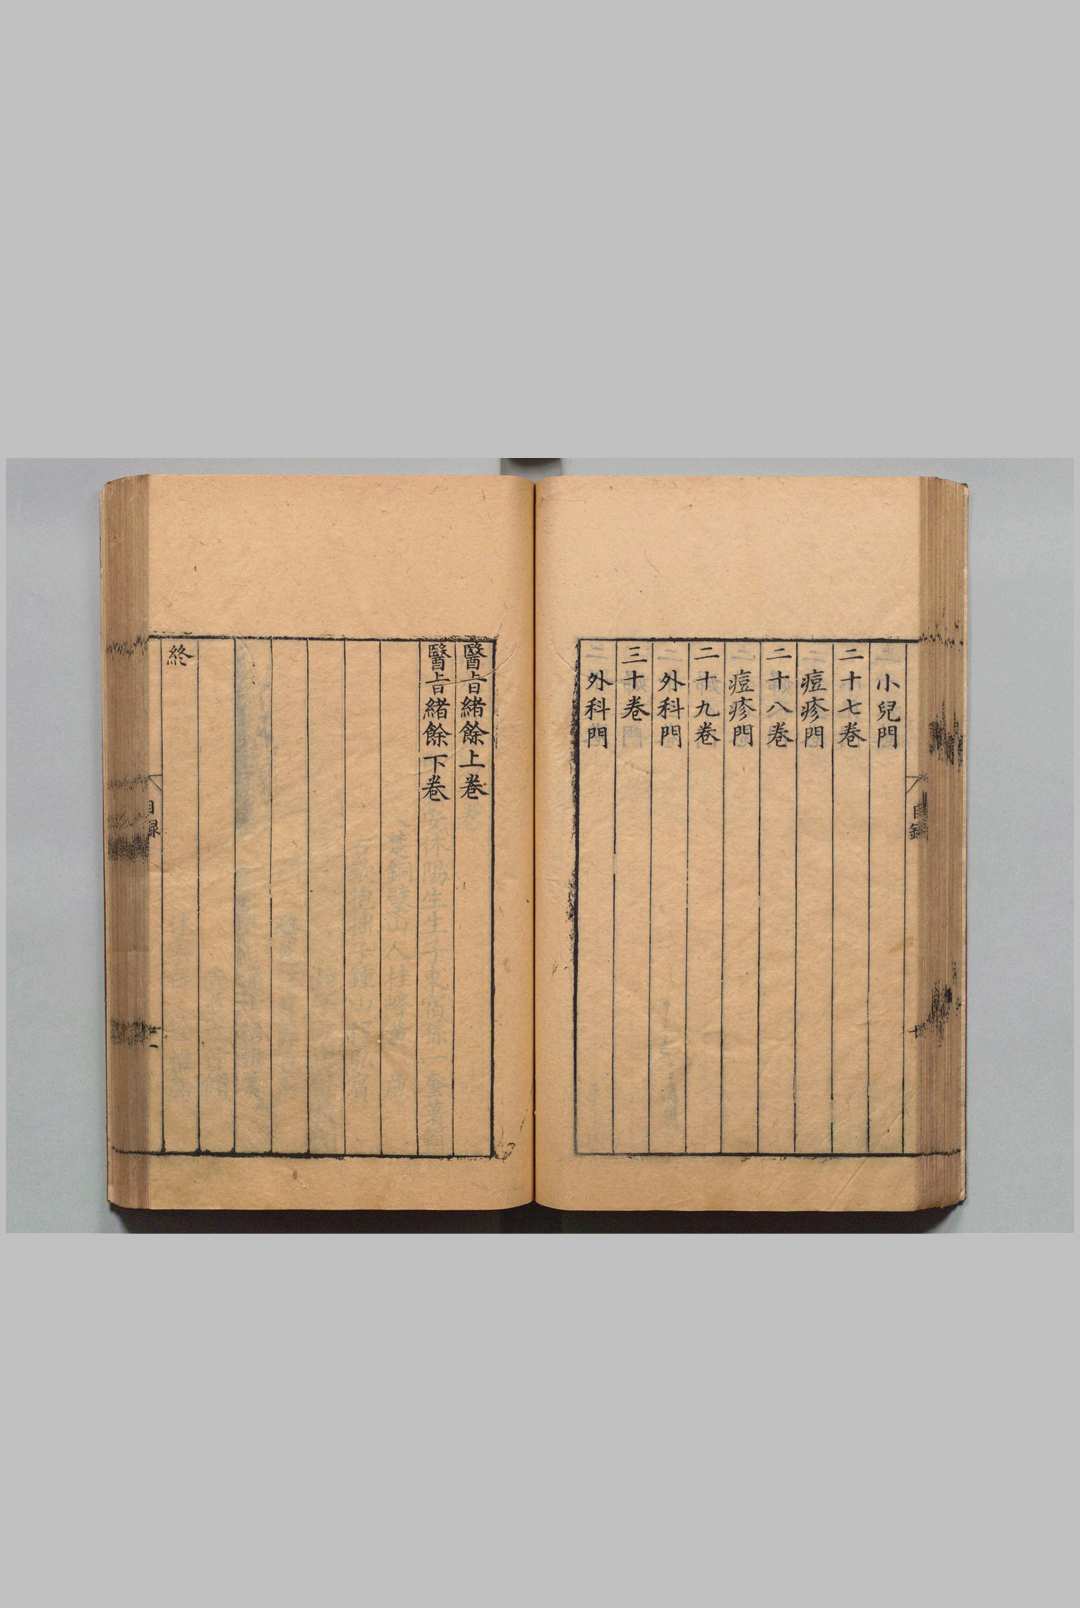 小兒門
二十七卷
痘疹門
二十八卷
痘疹門
二十九卷
外科門
三十卷
外科門
目錄
醫旨緒餘上卷
醫旨緒餘下卷
終
目録
二